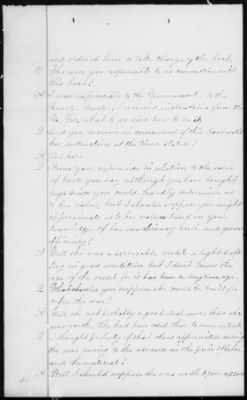 and ordered him to take charge of the boat.
Q Who were you responsible to in connection with
this boat?
A I was responsible to the Government, to the
Quarter Master, I received instructions from the
Qr. Mr. what to do and how to do it.
Q Did you remain in command of this boat until
her destruction at the time stated?
A Yes Sir.
Q From your experience in relation to the value
of boats you say although you have bought
none since you could hardly determine as
to her value, but I should suppose you might
approximate to her value based on your
knowledge of her machinery built and your
opinion?
A Well she was a serviceable vessel a light draft
tug in good condition but I don't know the
age of the vessel for it has been a long time ago.
Q What should you suppose she could be built for
after the war?
A Well she not probably a good deal more than she
was worth. She had been used then to some extent.
Q I thought probably of that. Does appreciated during
the war owing to the advance in the price of labor
and the material?
A Well I should suppose she was worth